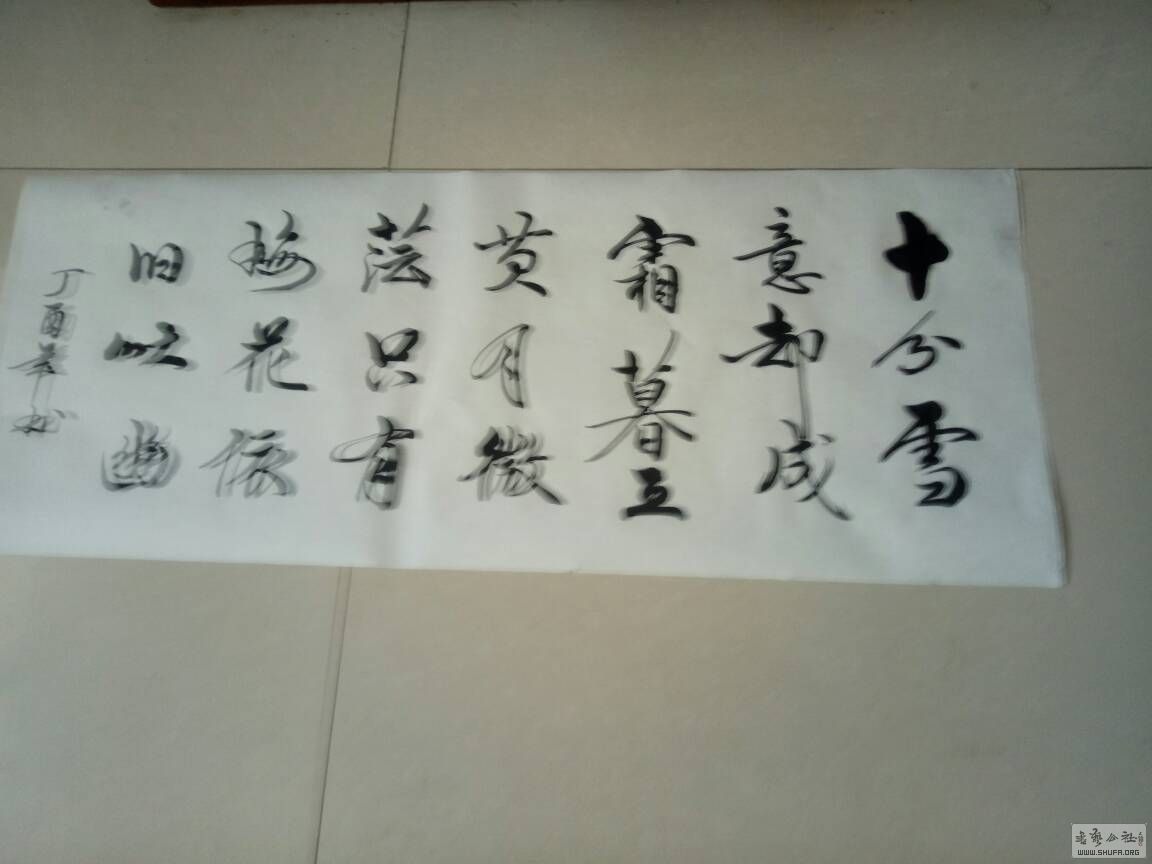 十分雪
意却成
霜暮云
黄月微
茫只有
梅花依
旧吐幽
丁酉
书艺公社
WWW.SHUFA.ORG